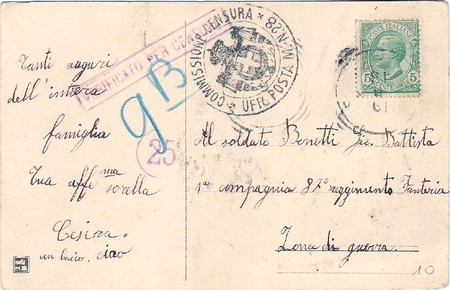 Tanti auguri
dell'intiera
famiglia
Tua affe ma sorella
Cesira
un bacio, ciao
VERIFICATO PER CENSURA
9B
25
COMMISSIONE CENSURA * UFIC. POSTA MIL. N. 28 *
POSTE ITALIANE
5 5
Al soldato Benetti Gio Battista
1a compagnia 82o reggimento Fanteria
Zona di guerra
10